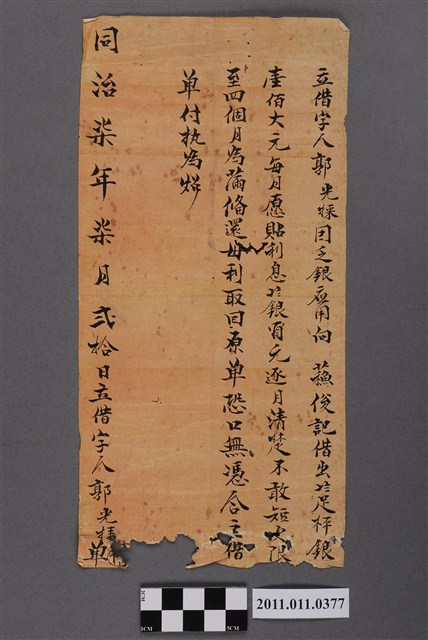 立借字人郭光㑅因乏銀应用向 蘓俊記借出本足秤銀
壹佰大元每月愿貼利息銀元逐月清楚不敢短少限
至四個月為滿俻還母利取回原单恐口無憑合立借
单付执為炤
同治柒年柒月弍拾日立借字人郭光 单
2011.011.0377
1CM
5CM